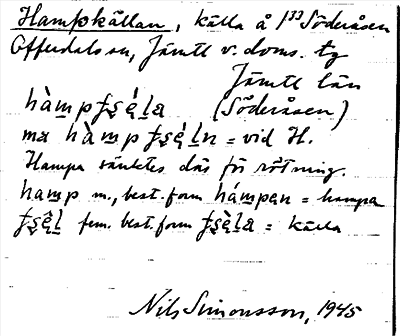 Hampkällan, källa å 1³³ Söderåsen
Offerdals sn, Jämtl v. doms. tg
Jämtl län
hàm̲pf̲s̲é̲l̲a (Söderåsen)
ma hàm̲pf̲s̲é̲l̲n = vid H.
Hampa sänktes där för rötning.
ham̲p m., best. form hám̲pan = hampa
f̲s̲ê̲l̲ fem. best. form f̲s̲è̲l̲a = källa
Nils Simonsson, 1945